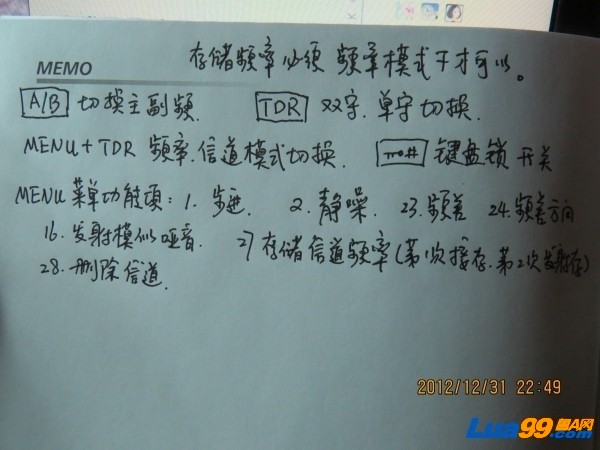 存储频率必须 频率模式下才可以。
MEMO
A/B 切换主副频. TDR 双守.单守切换.
MENU+TDR 频率.信道模式切换. 键盘锁 开关
MENU 菜单功能项: 1. 步进 2. 静噪. 23. 频差 24. 频差方向
16. 发射模似哑音. 27 存储信道频率(第1次接存.第2次发射存)
28. 删除信道.
2012/12/31 22:49
Lua99.com